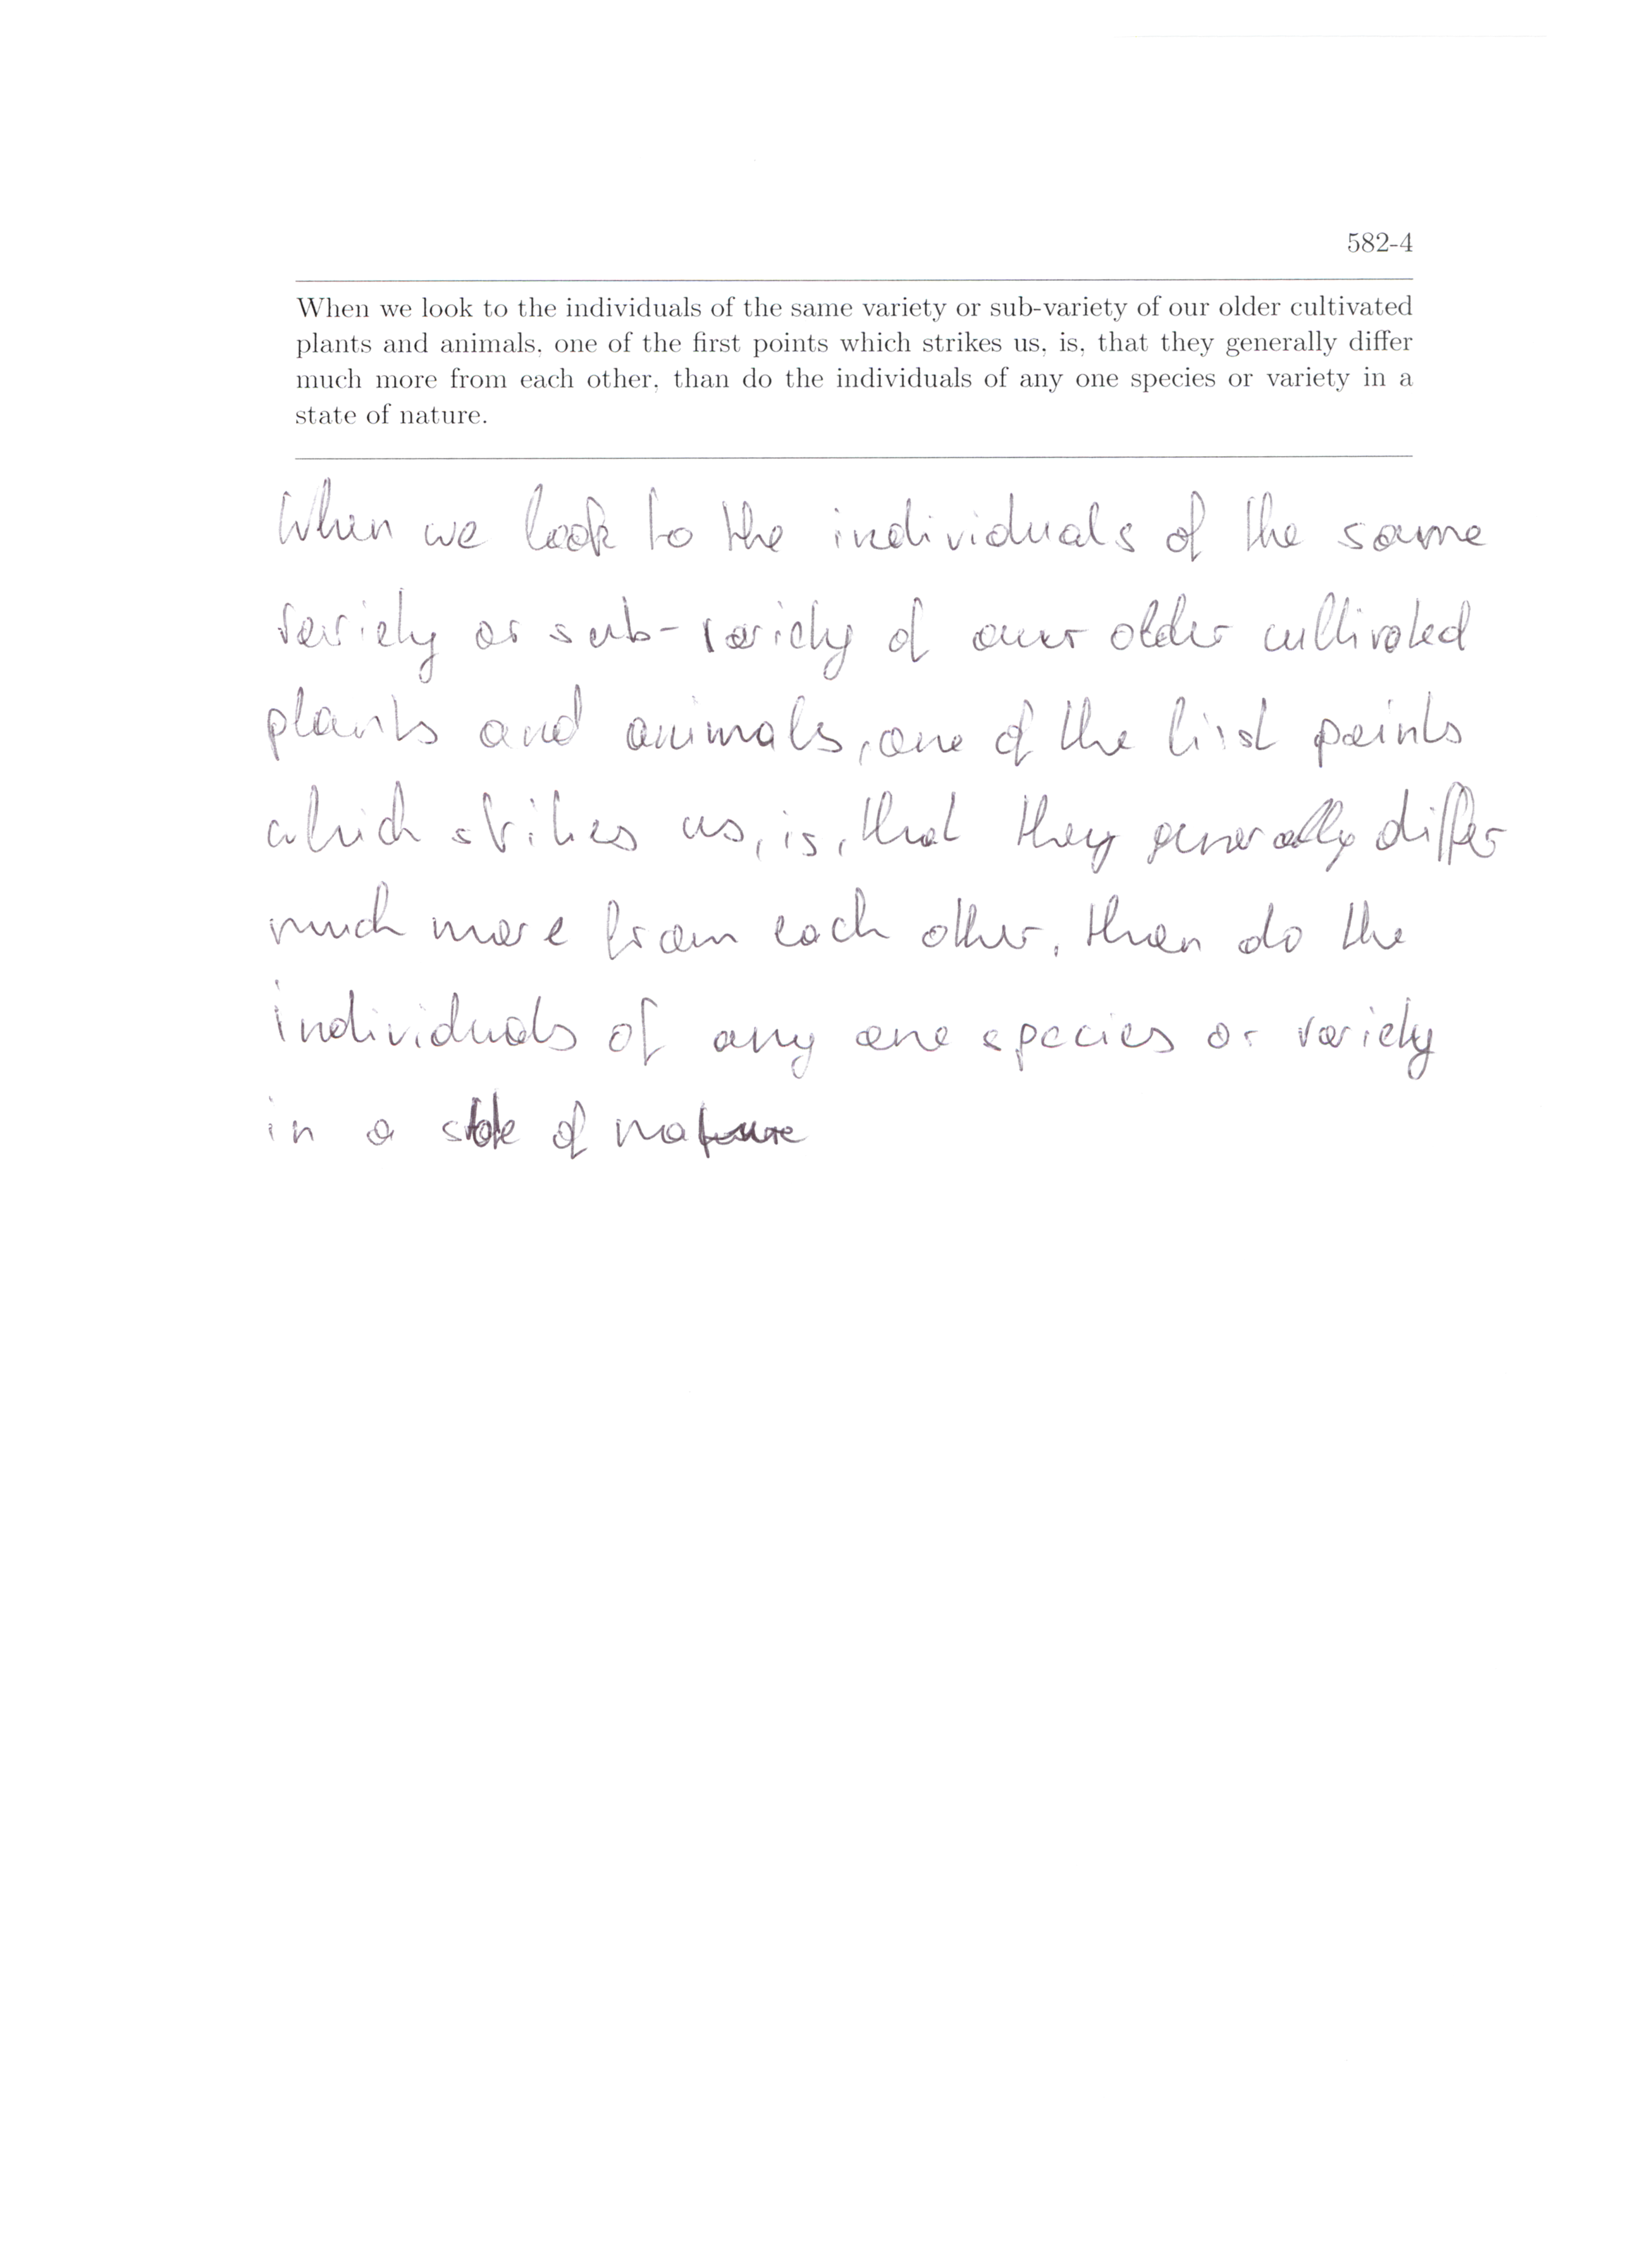 582-4
When we look to the individuals of the same variety or sub-variety of our older cultivated
plants and animals, one of the first points which strikes us, is, that they generally differ
much more from each other, than do the individuals of any one species or variety in a
state of nature.
When we look to the individuals of the same
variety or sub-variety of our older cultivated
plants and animals, one of the first points
which strikes us, is, that they generally differ
much more from each other, than do the
individuals of any one species or variety
in a state of nature